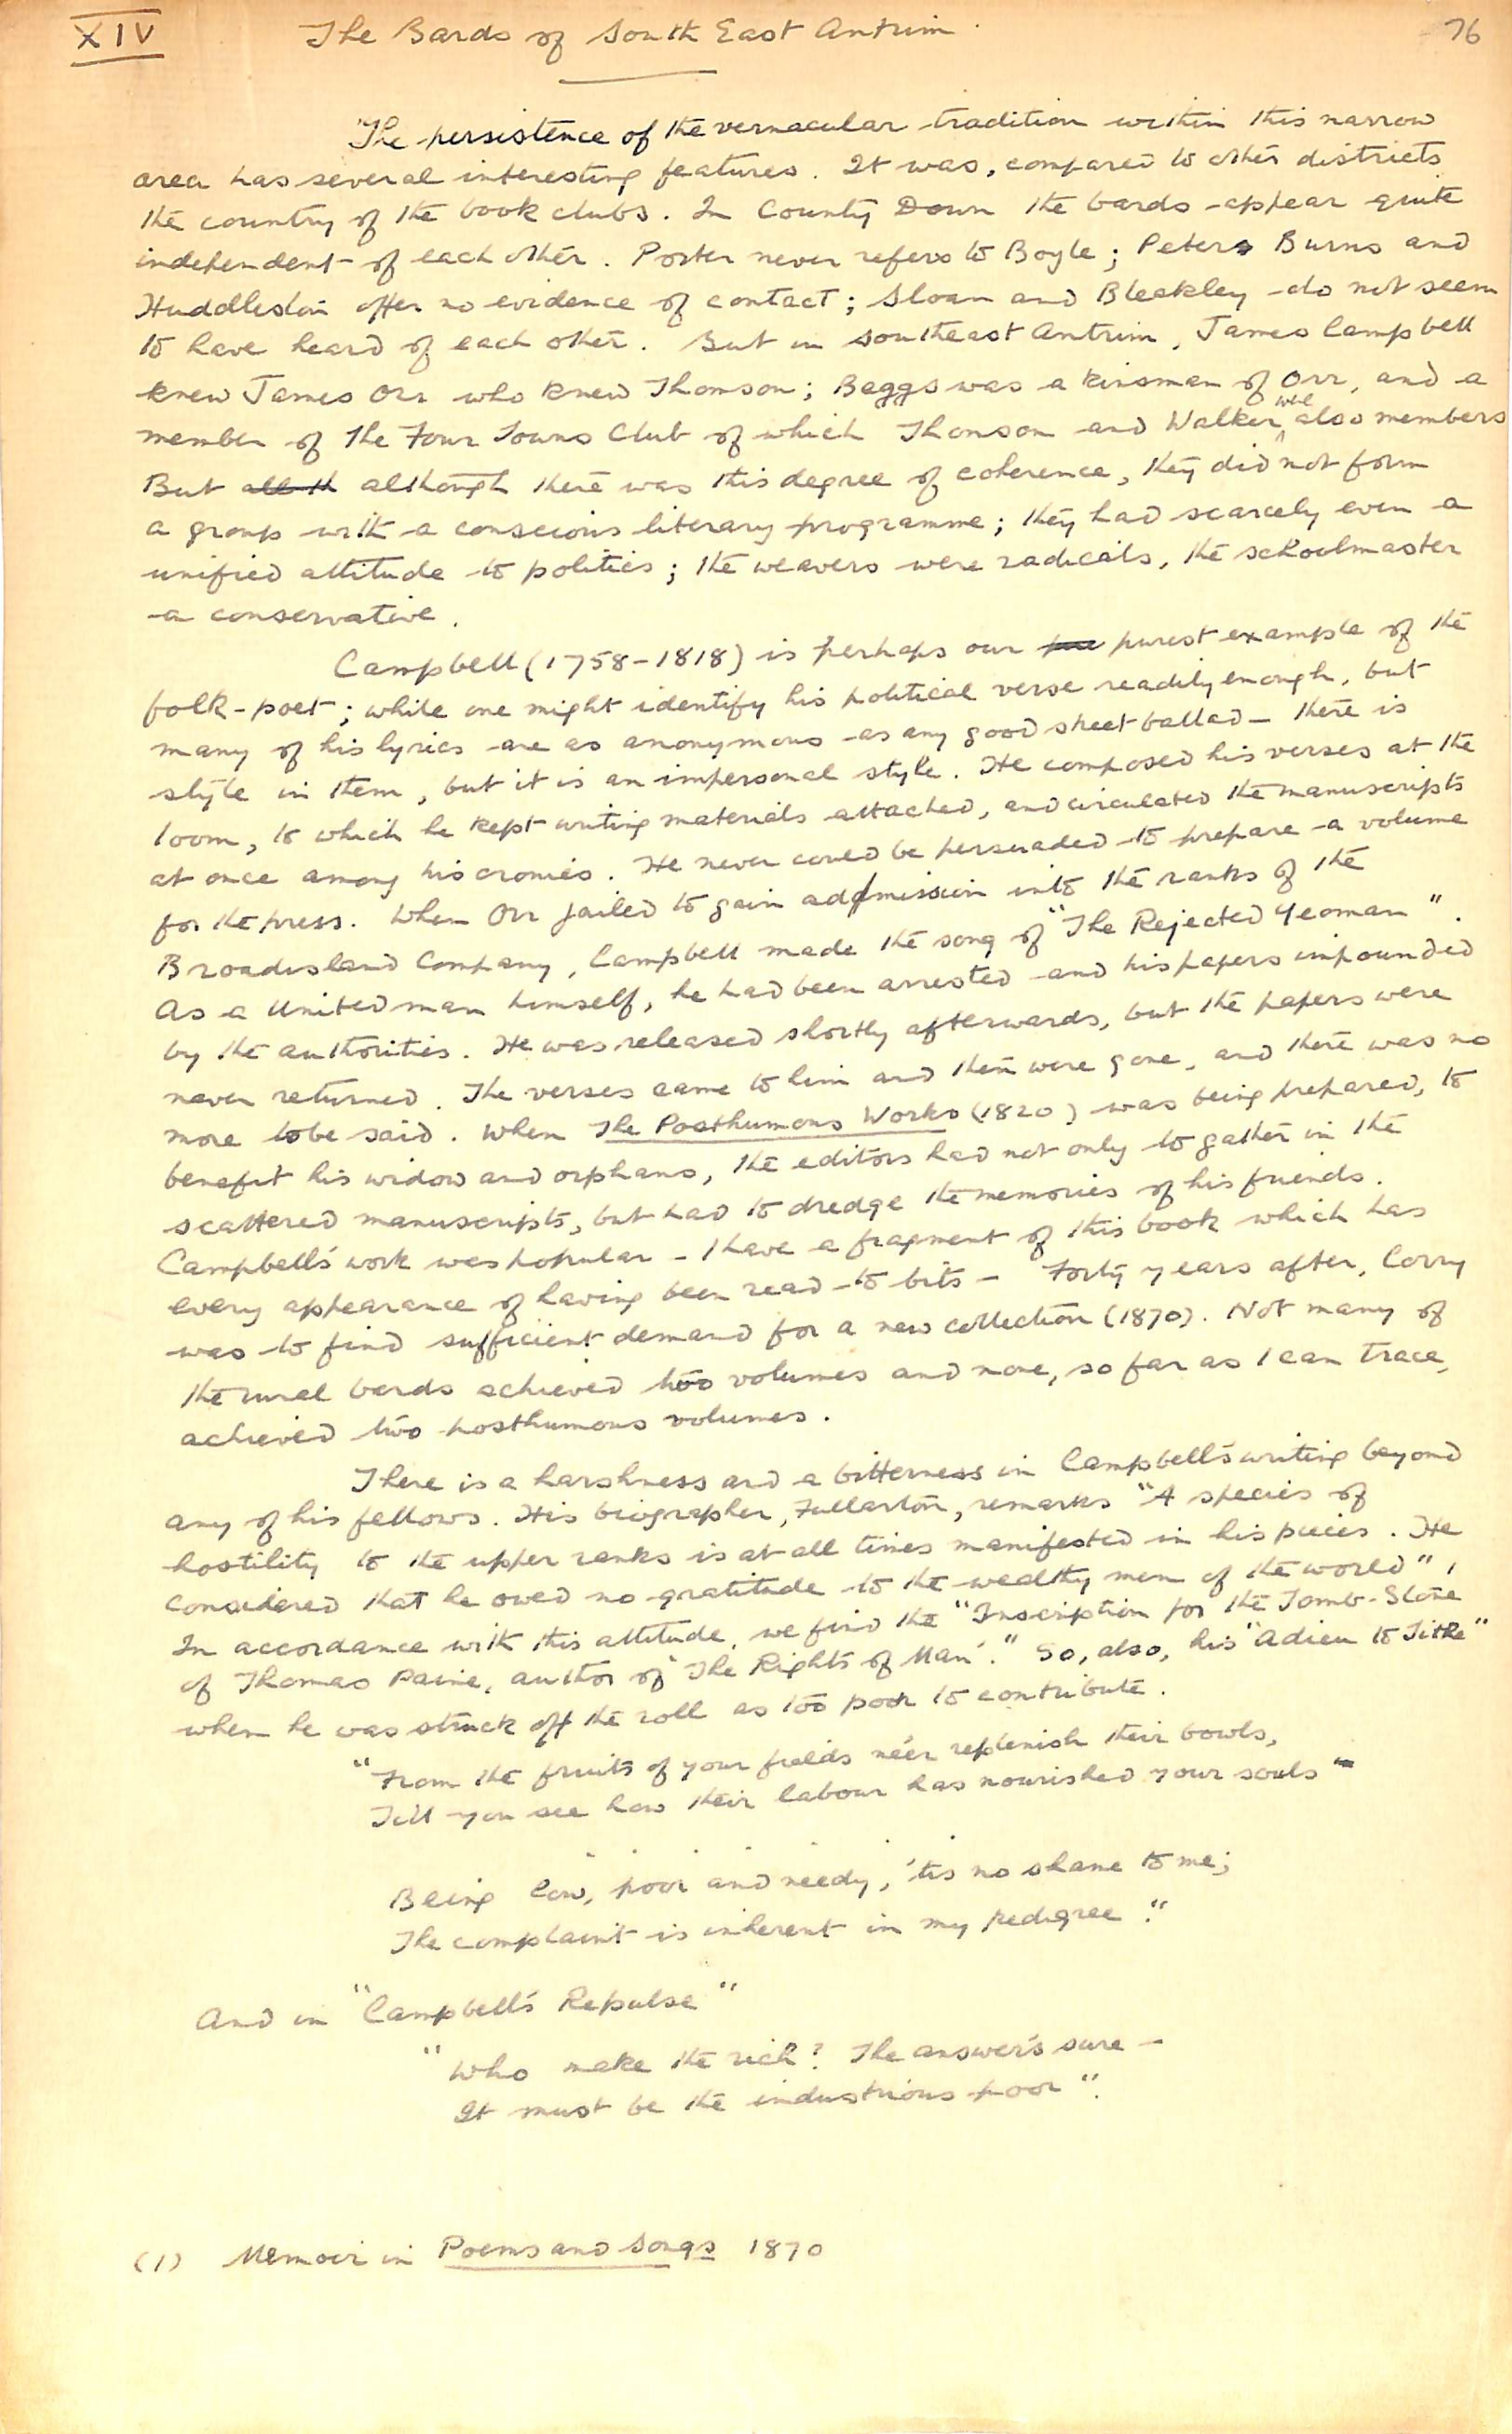 XIV The Bards of South East Antrim. 76
The persistence of the vernacular tradition within this narrow
area has several interesting features. It was, compared to other districts
the country of the book clubs. In County Down the bards appear quite
independent of each other. Porter never refers to Boyle; Peter Burns and
Huddleston offer no evidence of contact; Sloan and Bleakley do not seem
to have heard of each other. But in southeast Antrim, James Campbell
knew James Orr who knew Thomson; Beggs was a kinsman of Orr, and a
member of the Four Towns Club of which Thomson and Walker were also members
But all th although there was this degree of coherence, they did not form
a group with a conscious literary programme; they had scarcely even a
unified attitude to politics; the weavers were radicals, the schoolmaster
a conservative.
Campbell (1758-1818) is perhaps our pure purest example of the
folk-poet; while one might identify his political verse readily enough, but
many of his lyrics are as anonymous as any good street ballad - there is
style in them, but it is an impersonal style. He composed his verses at the
loom, to which he kept writing materials attached, and circulated the manuscripts
at once among his cronies. He never could be persuaded to prepare a volume
for the press. When Orr failed to gain admission into the ranks of the
Broadisland Company, Campbell made the song of "The Rejected Yeoman".
As a United man himself, he had been arrested and his papers impounded
by the authorities. He was released shortly afterwards, but the papers were
never returned. The verses came to him and then were gone, and there was no
more to be said. When The Posthumous Works (1820) was being prepared, to
benefit his widow and orphans, the editors had not only to gather in the
scattered manuscripts, but had to dredge the memories of his friends.
Campbell's work was popular - I have a fragment of this book which has
every appearance of having been read to bits - Forty years after, Corry
was to find sufficient demand for a new collection (1870). Not many of
the rural bards achieved two volumes and none, so far as I can trace,
achieved two posthumous volumes.
There is a harshness and a bitterness in Campbell's writing beyond
any of his fellows. His biographer, Fullarton, remarks "A species of
hostility to the upper ranks is at all times manifested in his pieces. He
considered that he owed no gratitude to the wealthy men of the world",
In accordance with this attitude, we find the "Inscription for the Tomb-Stone
of Thomas Paine, author of 'The Rights of Man'." So, also, his "Adieu to Tithe"
when he was struck off the roll as too poor to contribute.
"From the fruits of your fields ne'er replenish their bowls,
Till you see how their labour has nourished your souls"
Being low, poor and needy, 'tis no shame to me;
The complaint is inherent in my pedigree."
And in "Campbell's Repulse"
"Who make the rich? The answer's sure -
It must be the industrious poor".
(1) Memoir in Poems and Songs 1870